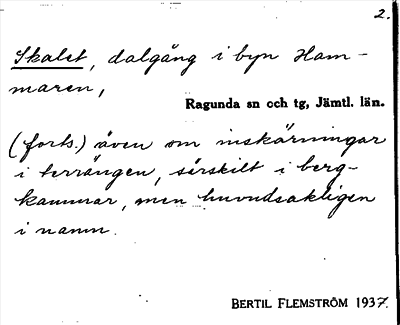 2.
Skalet, dalgång i byn Ham-
maren,
Ragunda sn och tg, Jämtl. län.
(forts.) även om inskärningar
i terrängen, särskilt i berg-
kammar, men huvudsakligen
i namn.
BERTIL FLEMSTRÖM 1937.